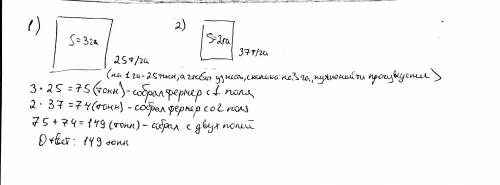 1) 2)
S=3га S=2га
25т/га 37т/га
(на 1 га - 25 тонн, а чтобы узнать, сколько на 3 га, нужно найти произведение)
3 · 25 = 75 (тонн) - собрал фермер с 1 поля
2 · 37 = 74 (тонн) - собрал фермер со 2 поля
75 + 74 = 149 (тонн) - собрал с двух полей
Ответ: 149 тонн